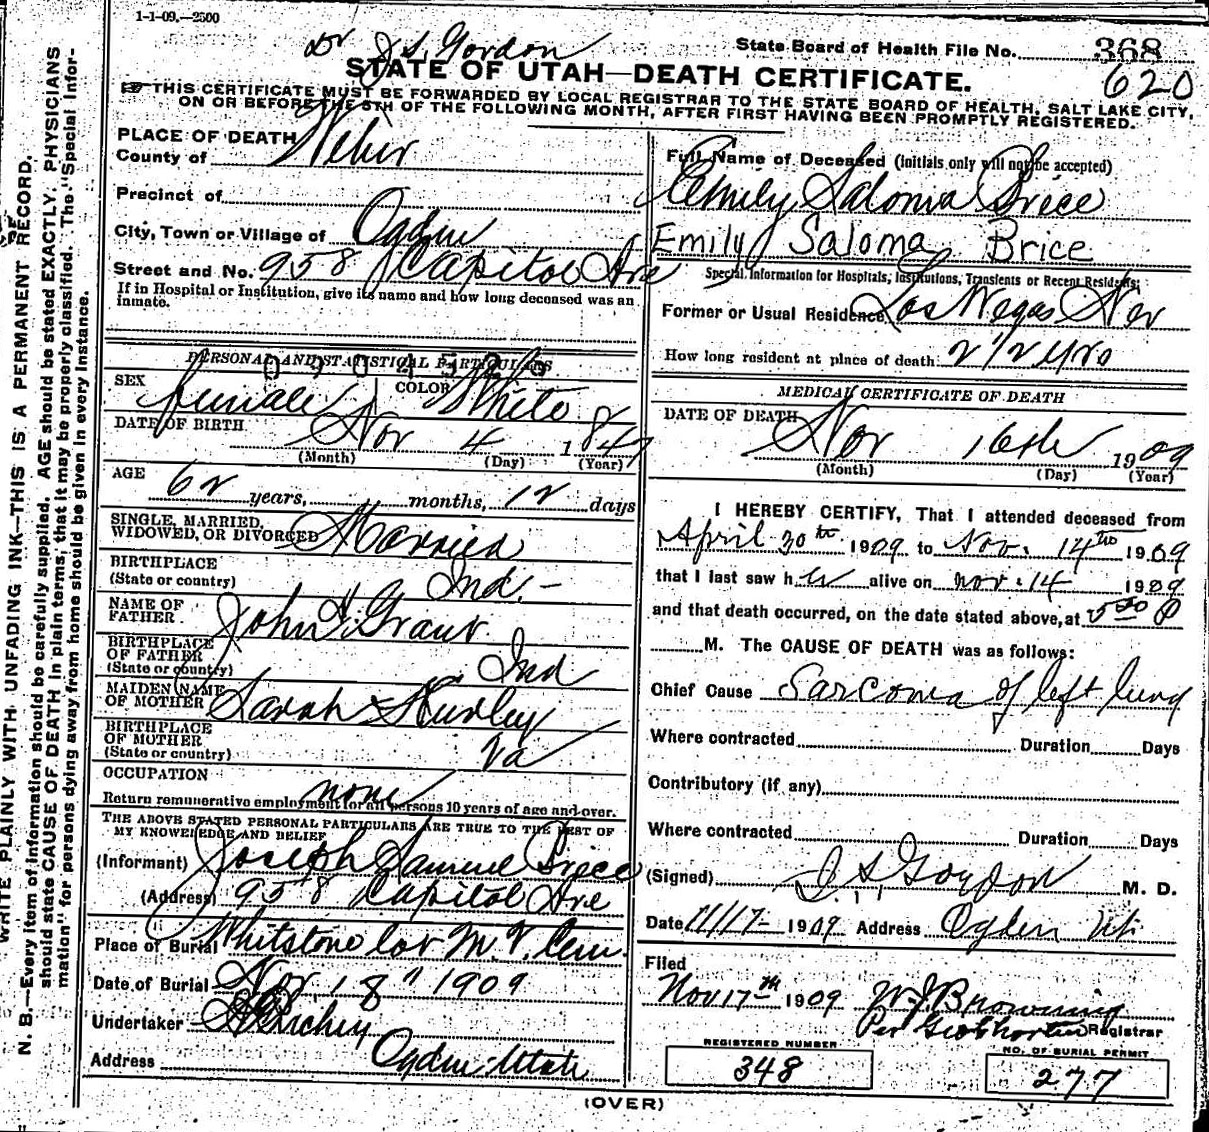 1-1-09.—2500
Dr J. S. Gordon
State Board of Health File No. 368
620
STATE OF UTAH—DEATH CERTIFICATE.
THIS CERTIFICATE MUST BE FORWARDED BY LOCAL REGISTRAR TO THE STATE BOARD OF HEALTH, SALT LAKE CITY,
ON OR BEFORE THE 5TH OF THE FOLLOWING MONTH, AFTER FIRST HAVING BEEN PROMPTLY REGISTERED.
WRITE PLAINLY WITH UNFADING INK—THIS IS A PERMANENT RECORD.
N. B.—Every item of information should be carefully supplied. AGE should be stated EXACTLY. PHYSICIANS
should state CAUSE OF DEATH in plain terms, that it may be properly classified. The "Special Infor-
mation" for persons dying away from home should be given in every instance.
PLACE OF DEATH
County of Weber
Precinct of
City, Town or Village of Ogden
Street and No. 958 Capitol Ave
If in Hospital or Institution, give its name and how long deceased was an
inmate.
PERSONAL AND STATISTICAL PARTICULARS
SEX female COLOR White
DATE OF BIRTH Nov 4 1847
(Month) (Day) (Year)
AGE 62 years, months, 12 days
SINGLE, MARRIED,
WIDOWED, OR DIVORCED Married
BIRTHPLACE
(State or country) Ind.-
NAME OF
FATHER John Grant
BIRTHPLACE
OF FATHER
(State or country) Ind
MAIDEN NAME
OF MOTHER Sarah Hurley
BIRTHPLACE
OF MOTHER
(State or country) Va
OCCUPATION none
Return remunerative employment for all persons 10 years of age and over.
THE ABOVE STATED PERSONAL PARTICULARS ARE TRUE TO THE BEST OF
MY KNOWLEDGE AND BELIEF
(Informant) Joseph Samuel Brice
(Address) 958 Capitol Ave
Place of Burial Mt. V. Cem.
Date of Burial Nov 18" 1909
Undertaker Richey
Address Ogden Utah
Full Name of Deceased (initials only will not be accepted)
Emily Saloma Brice
Emily Saloma Brice
Special Information for Hospitals, Institutions, Transients or Recent Residents:
Former or Usual Residence Los Vegas Nev
How long resident at place of death 2 1/2 yrs
MEDICAL CERTIFICATE OF DEATH
DATE OF DEATH Nov 16th 1909
(Month) (Day) (Year)
I HEREBY CERTIFY, That I attended deceased from
April 30th 1909 to Nov. 14th 1909
that I last saw her alive on Nov. 14 1909
and that death occurred, on the date stated above, at 5 30 P
M. The CAUSE OF DEATH was as follows:
Chief Cause Sarcoma of left lung
Where contracted Duration Days
Contributory (if any)
Where contracted Duration Days
(Signed) J. S. Gordon M. D.
Date 11/17- 1909 Address Ogden Ut.
Filed
Nov 17th 1909 W J Browning
Per Registrar
REGISTERED NUMBER
348
NO. OF BURIAL PERMIT
277
(OVER)